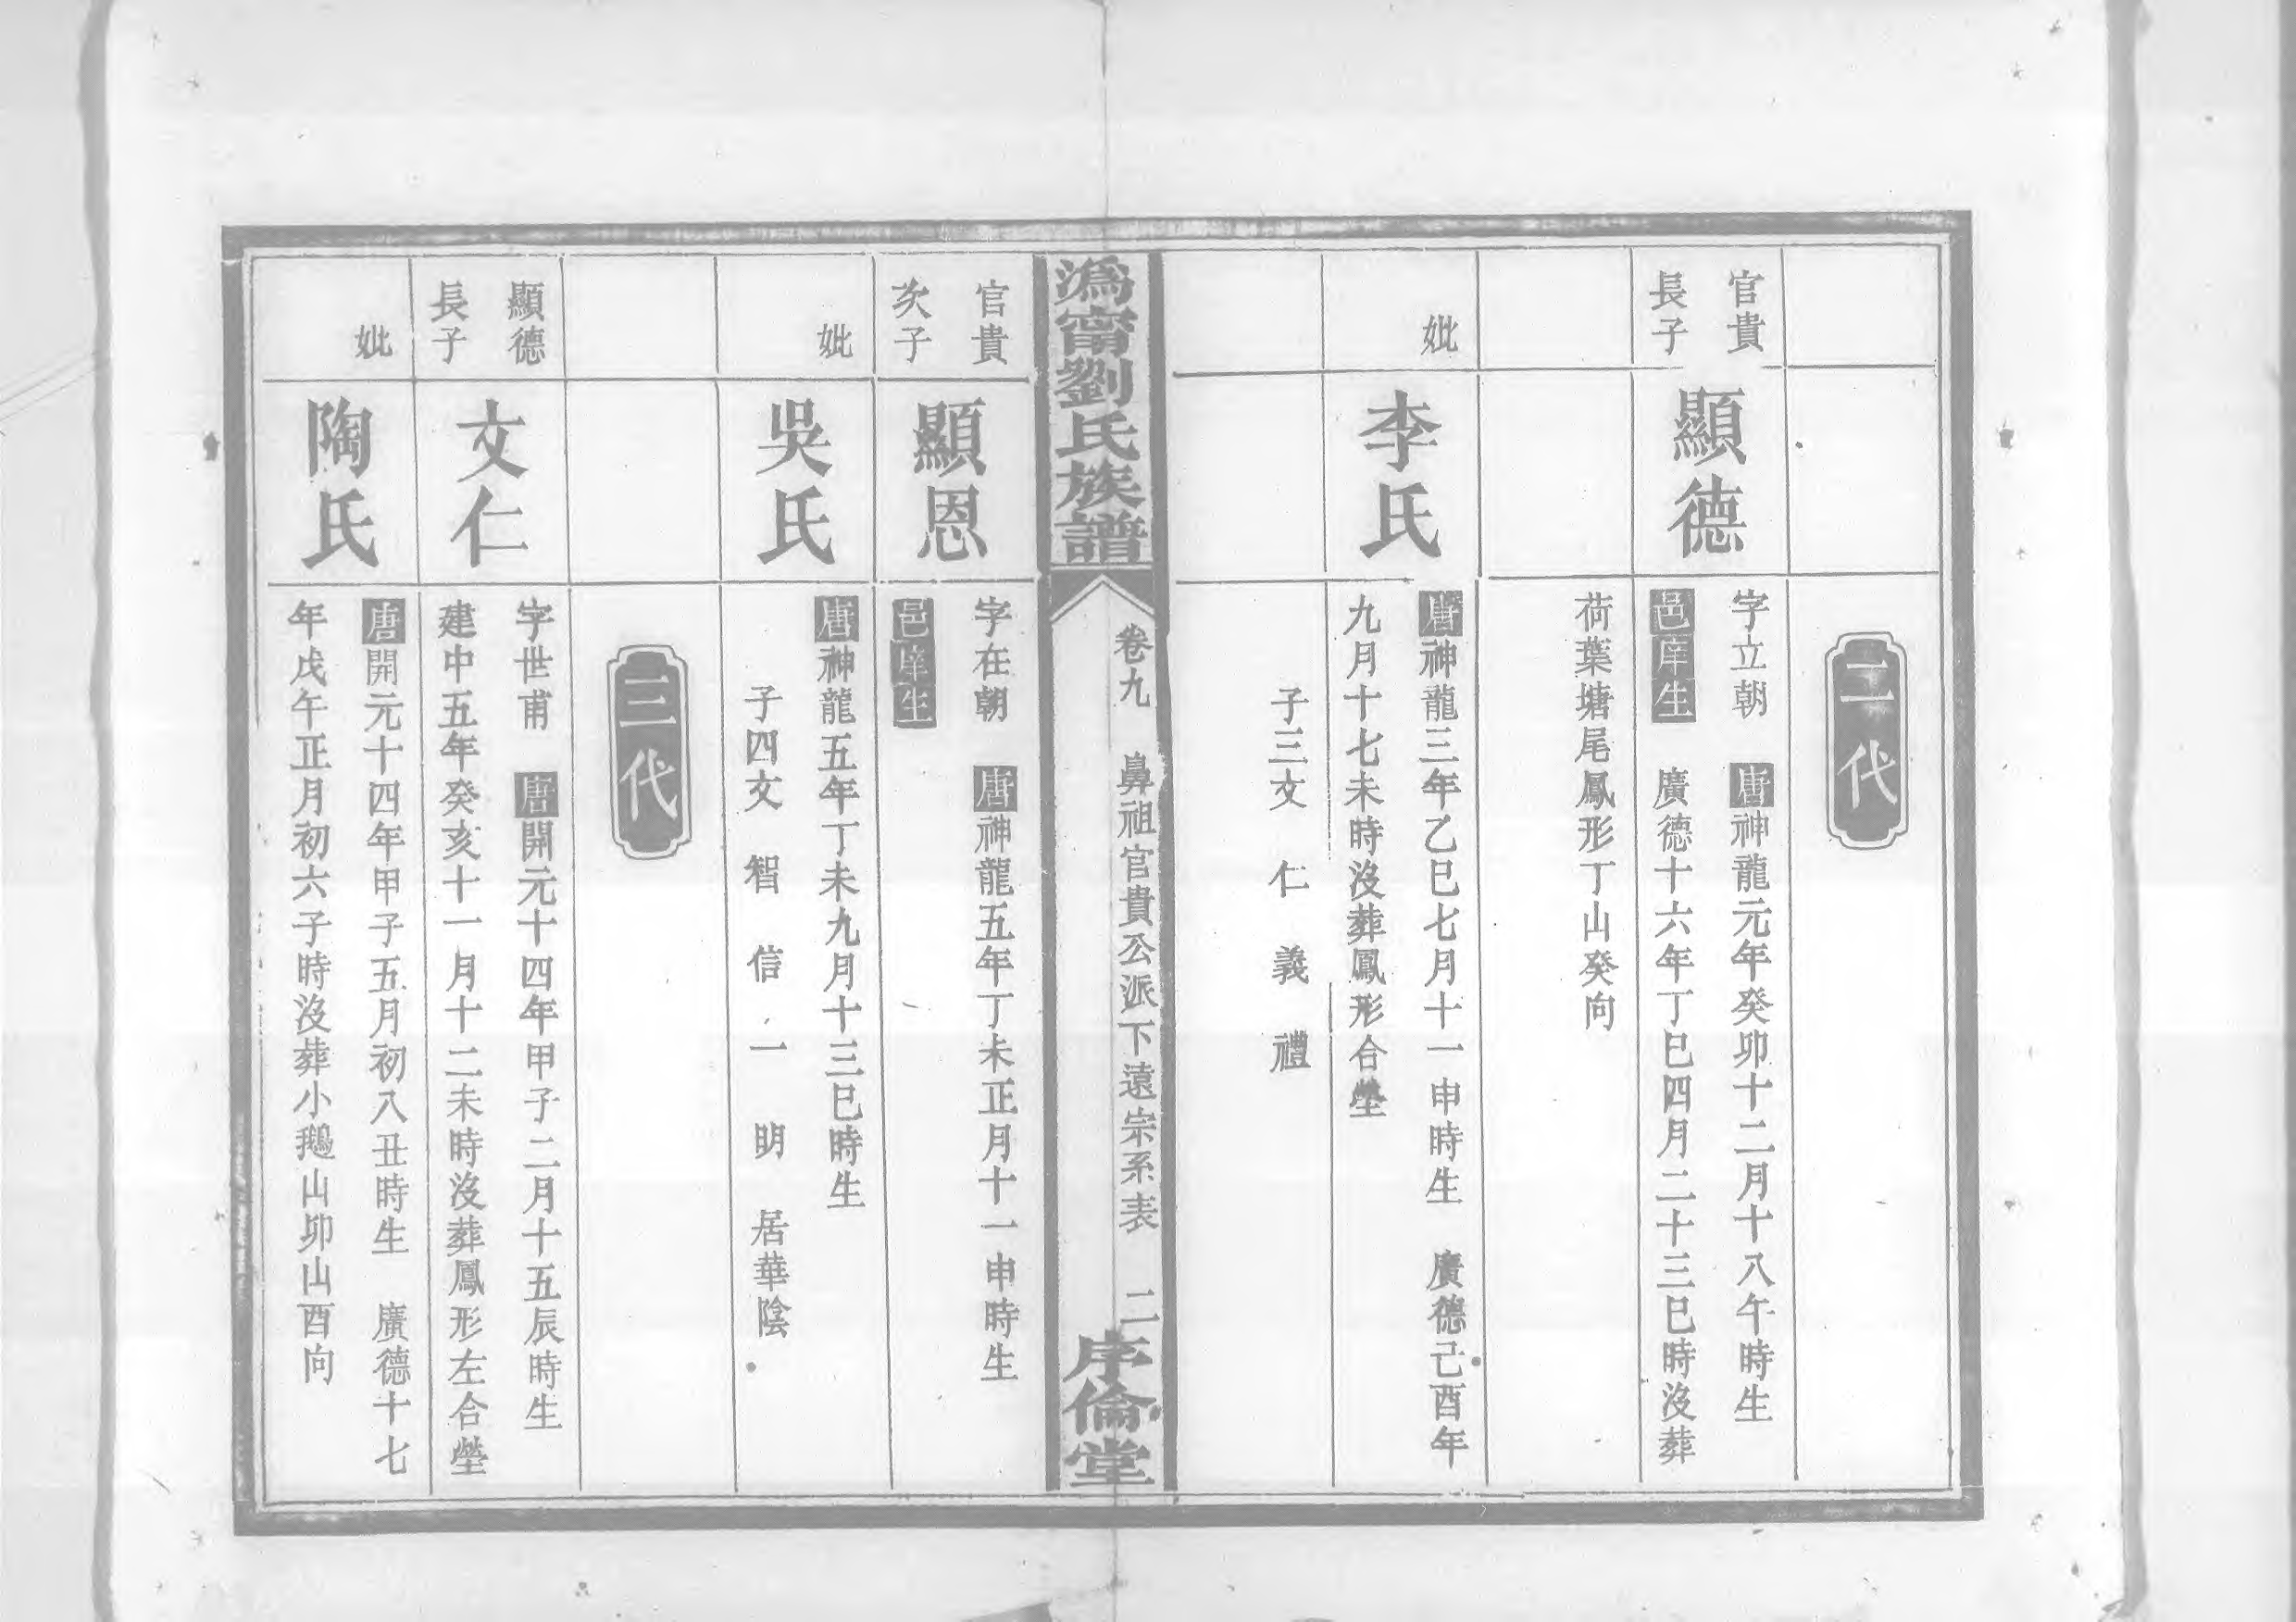 二代
官貴
長子
顯德
字立朝　唐神龍元年癸卯十二月十八午時生
邑庠生　廣德十六年丁巳四月二十三巳時沒葬
荷葉塘尾鳳形丁山癸向
妣
李氏
唐神龍三年乙巳七月十一申時生　廣德己酉年
九月十七未時沒葬鳳形合塋
子三文　仁　義　禮
溈甯劉氏族譜
卷九　鼻祖官貴公派下遠宗系表　二
序倫堂
官貴
次子
顯恩
字在朝　唐神龍五年丁未正月十一申時生
邑庠生
妣
吳氏
唐神龍五年丁未九月十三巳時生
子四文　智　信　一　明　居華陰
三代
顯德
長子
文仁
字世甫　唐開元十四年甲子二月十五辰時生
建中五年癸亥十一月十二未時沒葬鳳形左合塋
妣
陶氏
唐開元十四年甲子五月初八丑時生　廣德十七
年戊午正月初六子時沒葬小鵝山卯山酉向